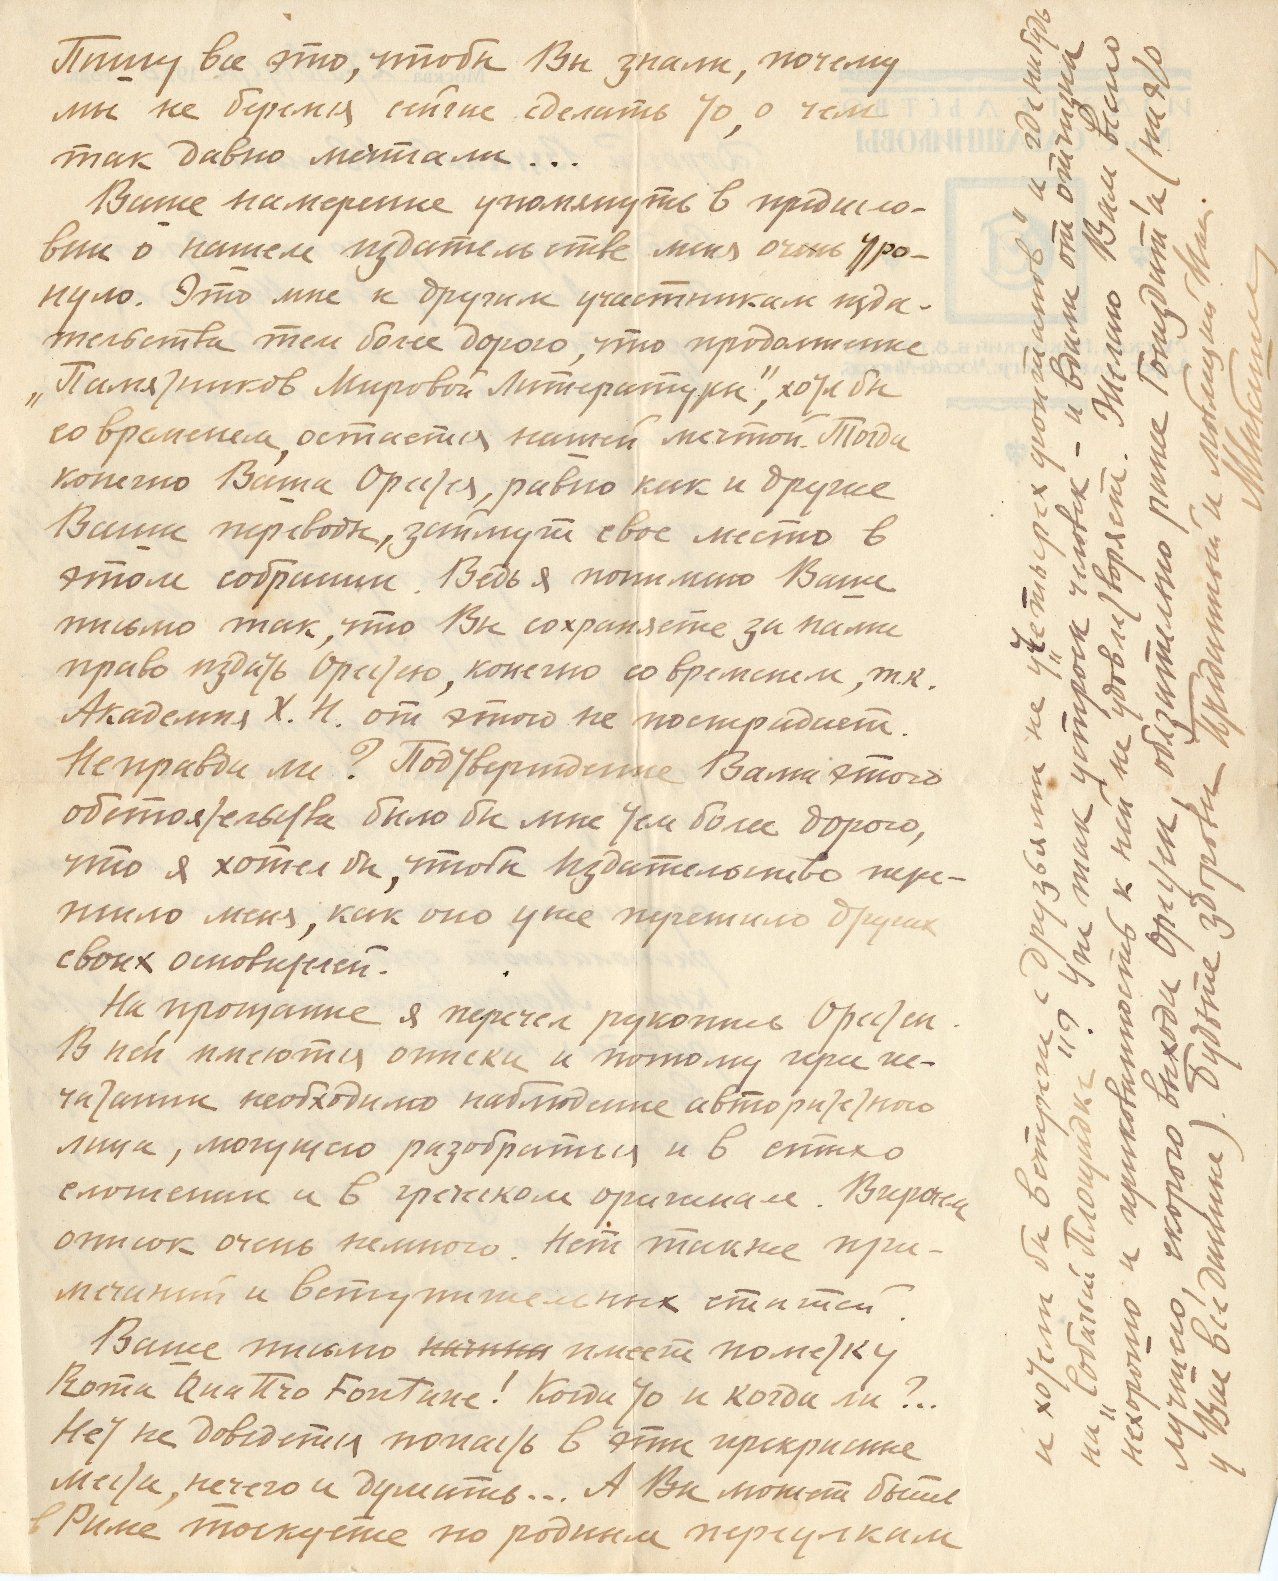 Пишу все это, чтобы Вы знали, почему
мы не беремся сейчас сделать то, о чем
так давно мечтали...
Ваше намерение упомянуть в предисло-
вии о нашем издательстве меня очень тро-
нуло. Это мне и другим участникам изда-
тельства тем более дорого, что продолжение
„Памятников Мировой Литературы", хотя бы
со временем, остается нашей мечтой. Тогда
конечно Ваша Орестея, равно как и другие
Ваши переводы, займут свое место в
этом собрании. Ведь я понимаю Ваше
письмо так, что Вы сохраняете за нами
право издать Орестею, конечно со временем, т.к.
Академия Х. Н. от этого не пострадает.
Неправда ли? Подтверждение Вами этого
обстоятельства было бы мне тем более дорого,
что я хотел бы, чтобы Издательство пере-
жило меня, как оно уже пережило других
своих основателей.
На прощание я перечел рукопись Орестеи.
В ней имеются описки и потому при пе-
чатании необходимо наблюдение авторитетного
лица, могущего разобраться и в стихо
сложении и в греческом оригинале. Впрочем
описок очень немного. Нет также при-
мечаний и вступительных статей.
Ваше письмо имеет пометку
Roma Quattro Fontane! Когда то и когда ли?..
Нет не доведется попасть в эти прекрасные
места, нечего и думать... А Вы может быть
в Риме тоскуете по родным переулкам
и хотели бы встречи с друзьями не у „четырех фонтанов" а где нибудь
на „Собачьей Площадке"? Уж так устроен человек - и вдали от отчизны
нехорошо и прикованность к ней не удовлетворяет. Желаю Вам всего
лучшего, скорого выхода Орестеи, обязательно ранее Гонздита (на что
у Вас все данные). Будьте здоровы Преданный и любящий Вас.
МСабашников